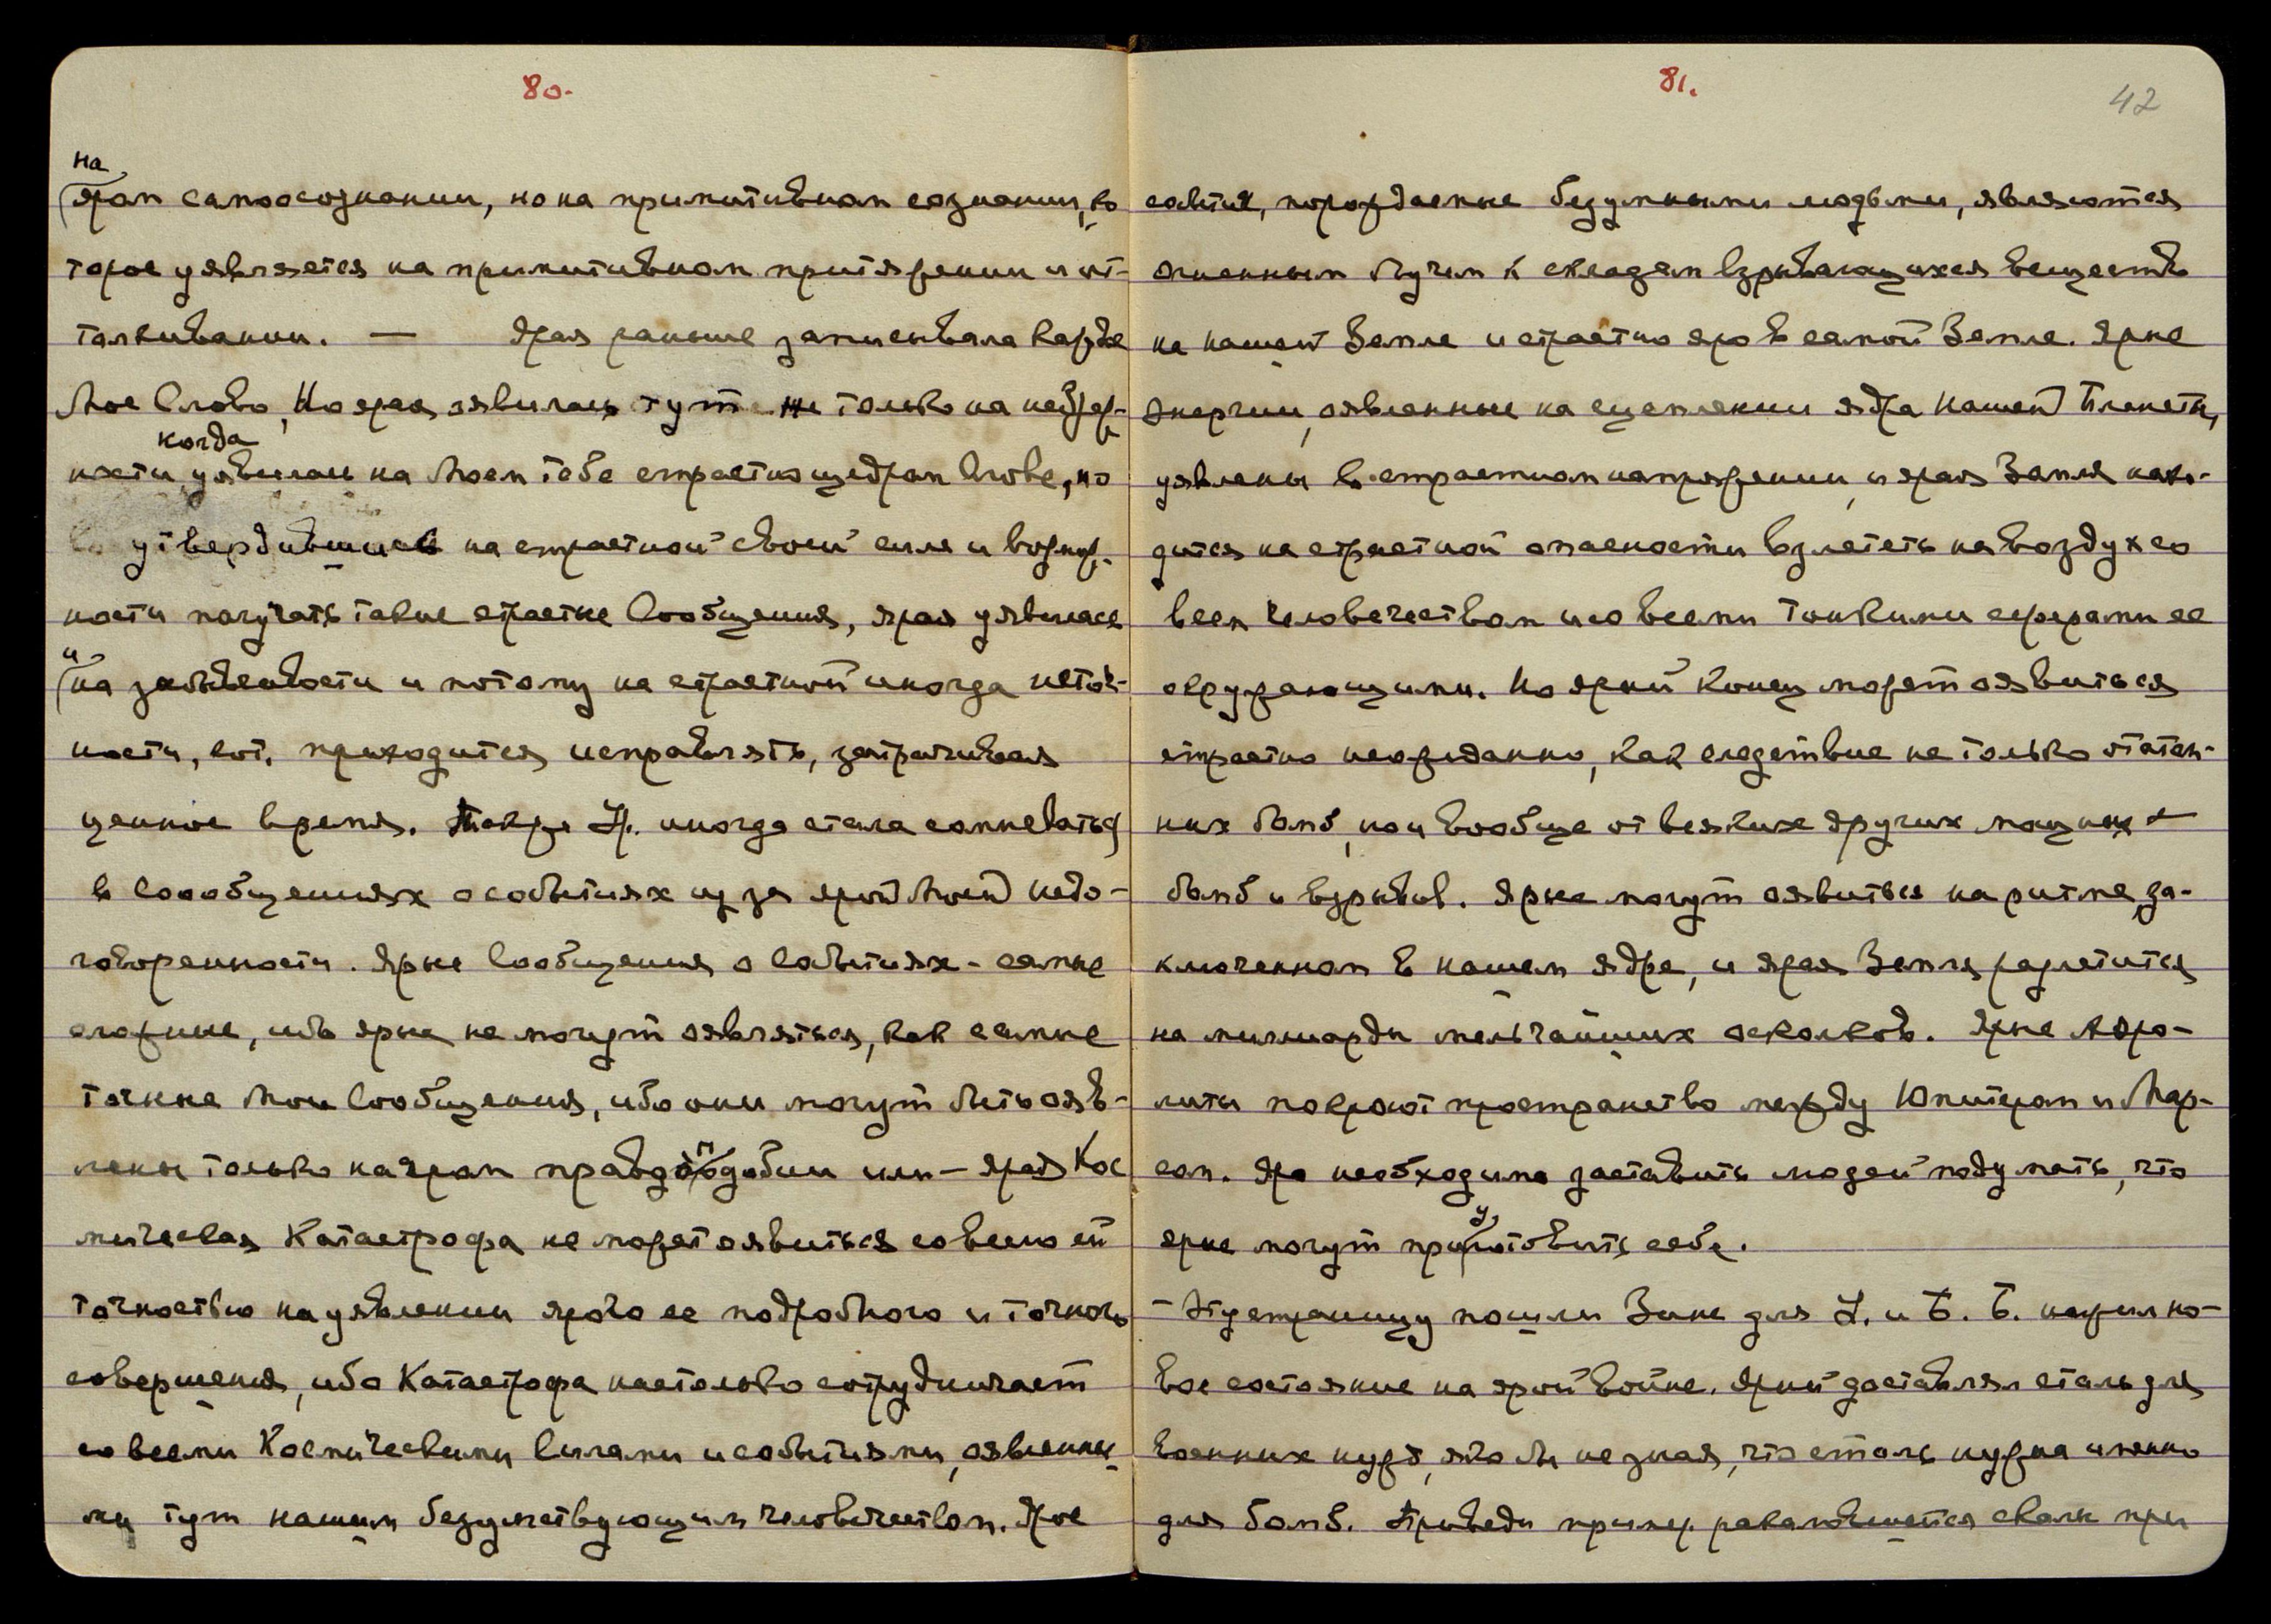 80.
на
яром самоосознании, но на примитивном сознании, ко
торое уявляется на примитивном притяжении и от-
талкивании. — Ярая раньше записывала каждое
Мое Слово, Но ярая явилась тут не только на небреж-
ности, когда уявилась на Моем тебе страстно щедром Слове, но
утвердившись на страстной своей силе и возмож-
ности получать такие страстные Сообщения, ярая уявилась
и на забывчивости и потому на страстной иногда неточ-
ности, кот. приходится исправлять, затрачивая
ценное время. Также У. иногда стала сомневаться
в Сообщениях о событиях из за ярой Моей недо-
говоренности. Ярые Сообщения о Событиях - самые
сложные, ибо ярые не могут оявляться, как самые
точные Мои Сообщения, ибо они могут быть ояв-
лены только на яром правдоподобии или — ярая Кос
мическая Катастрофа не может оявиться со всею ей
точностью на уявлении ярого ее подробного и точного
совершения, ибо Катастрофа настолько сотрудничает
со всеми Космическими Силами и событиями, оявленны
ми тут нашим безумствующим человечеством. Ярое
81.
42
события, порождаемые безумными людьми, являются
огненным Лучем к складам взрывающихся веществ
на нашей Земле и страстно яро в самой Земле. Ярые
Энергии, оявленные на сцеплении ядра Нашей Планеты,
уявлены в страстном напряжении, и ярая Земля нахо-
дится на страстной опасности взлететь на воздух со
всем Человечеством и со всеми тонкими сферами ее
окружающими. Но ярый конец может оявиться
страстно неожиданно, как следствие не только от атом-
ных бомб, но и вообще от всяких других мощных
бомб и взрывов. Ярые могут оявиться на ритме, за-
ключенном в нашем ядре, и ярая Земля разлетится
на миллиарды мельчайших осколков. Ярые Аэро-
литы покроют пространство между Юпитером и Мар-
сом. Яро необходимо заставить людей подумать, что
ярые могут приуготовить себе.
— Эту страницу пошли Зине для У. и Б. Б. нажил но-
вое состояние на ярой войне. Ярый доставлял сталь для
военных нужд, яко бы не зная, что сталь нужна именно
для бомб. Приведи пример. скалы при